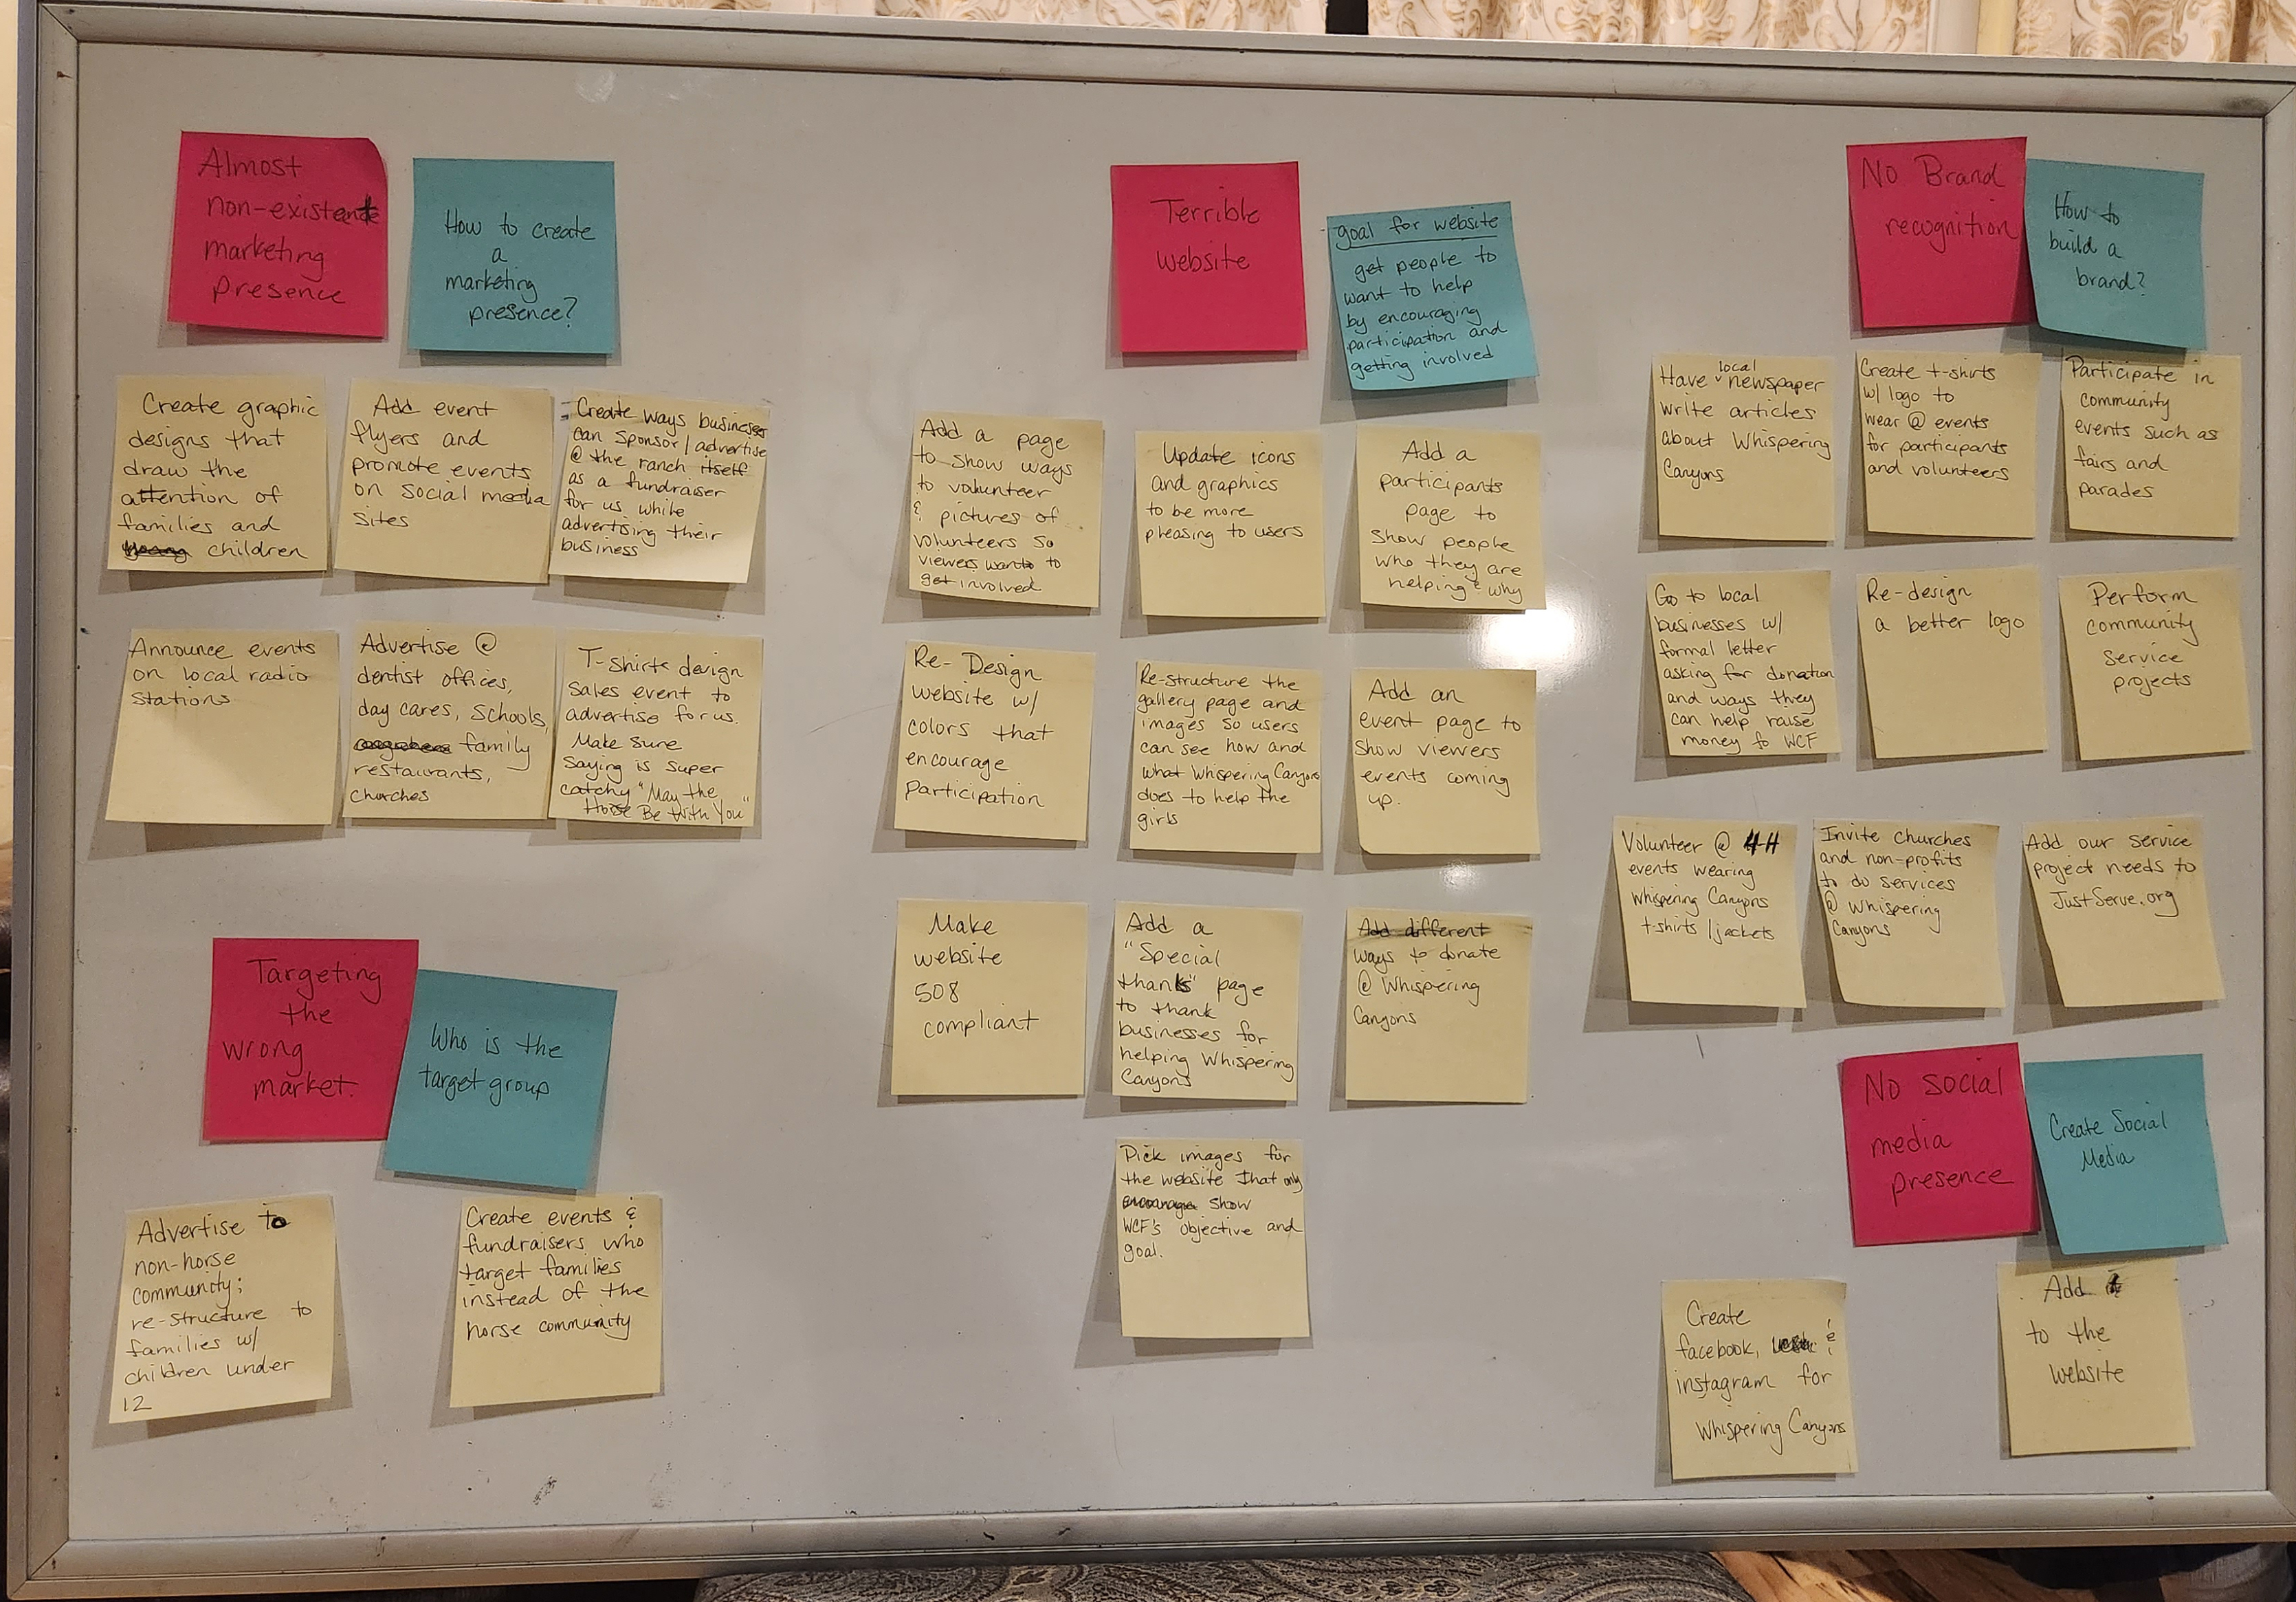 Almost
non-existent
marketing
presence
How to create
a
marketing
presence?
Create graphic
designs that
draw the
attention of
families and
young children
Add event
flyers and
promote events
on social media
sites
Create ways businesses
can sponsor/advertise
@ the ranch itself
as a fundraiser
for us while
advertising their
business
Announce events
on local radio
stations
Advertise @
dentist offices,
day cares, schools,
family
restaurants,
churches
T-shirts design
sales event to
advertise for us.
Make sure
saying is super
catchy "May the
Horse Be With You"
Targeting
the
wrong
market.
Who is the
target group
Advertise to
non-horse
community;
re-structure to
families w/
children under
12
Create events &
fundraisers who
target families
instead of the
horse community
Terrible
website
goal for website
get people to
want to help
by encouraging
participation and
getting involved
Add a page
to show ways
to volunteer
& pictures of
volunteers so
viewers want to
get involved
Update icons
and graphics
to be more
pleasing to users
Add a
participants
page to
show people
who they are
helping & why
Re-Design
website w/
colors that
encourage
participation
Re-structure the
gallery page and
images so users
can see how and
what Whispering Canyons
does to help the
girls
Add an
event page to
show viewers
events coming
up.
Make
website
508
compliant
Add a
"Special
thanks" page
to thank
businesses for
helping Whispering
Canyons
Add different
ways to donate
@ Whispering
Canyons
Pick images for
the website that only
show
WCF's objective and
goal.
No Brand
recognition
How to
build a
brand?
Have local newspaper
write articles
about Whispering
Canyons
Create t-shirts
w/ logo to
wear @ events
for participants
and volunteers
Participate in
community
events such as
fairs and
parades
Go to local
businesses w/
formal letter
asking for donation
and ways they
can help raise
money fo WCF
Re-design
a better logo
Perform
community
service
projects
Volunteer @ 4-H
events wearing
Whispering Canyons
t-shirts/jackets
Invite churches
and non-profits
to do services
@ Whispering
Canyons
Add our service
project needs to
JustServe.org
No social
media
presence
Create Social
Media
Create
facebook, &
instagram for
Whispering Canyons
Add
to the
website